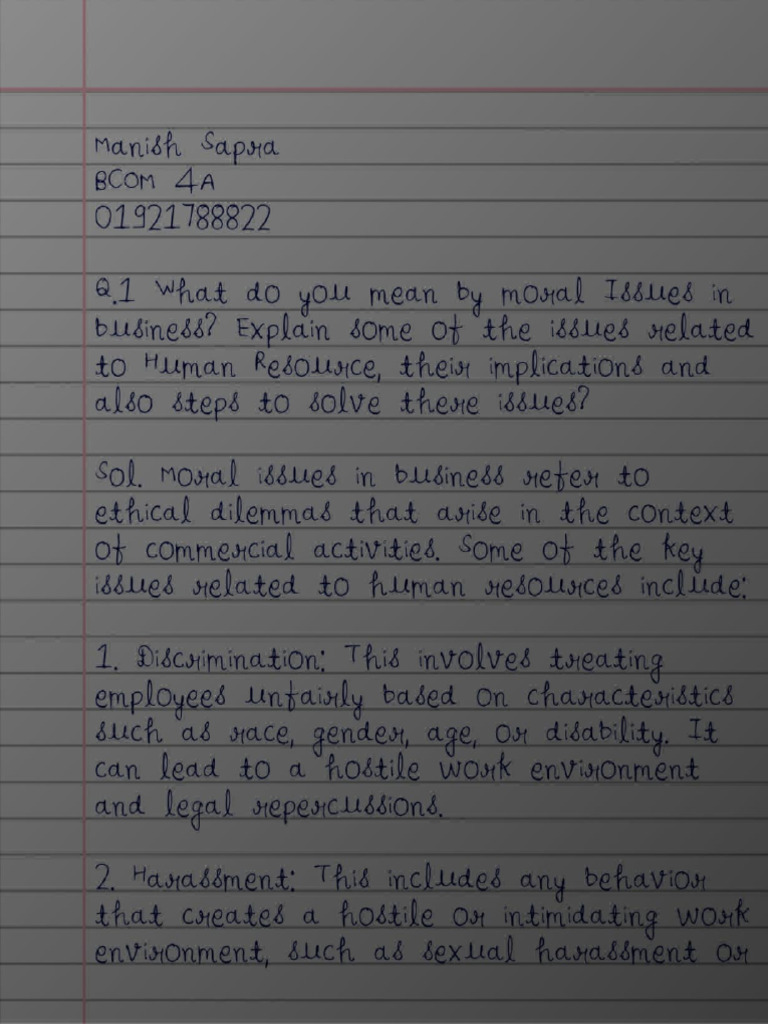 Manish Sapra
BCOM 4A
01921788822
Q.1 What do you mean by moral Issues in
business? Explain some of the issues related
to Human Resource, their implications and
also steps to solve there issues?
Sol. Moral issues in business refer to
ethical dilemmas that arise in the context
of commercial activities. Some of the key
issues related to human resources include:
1. Discrimination: This involves treating
employees unfairly based on characteristics
such as race, gender, age, or disability. It
can lead to a hostile work environment
and legal repercussions.
2. Harassment: This includes any behavior
that creates a hostile or intimidating work
environment, such as sexual harassment or